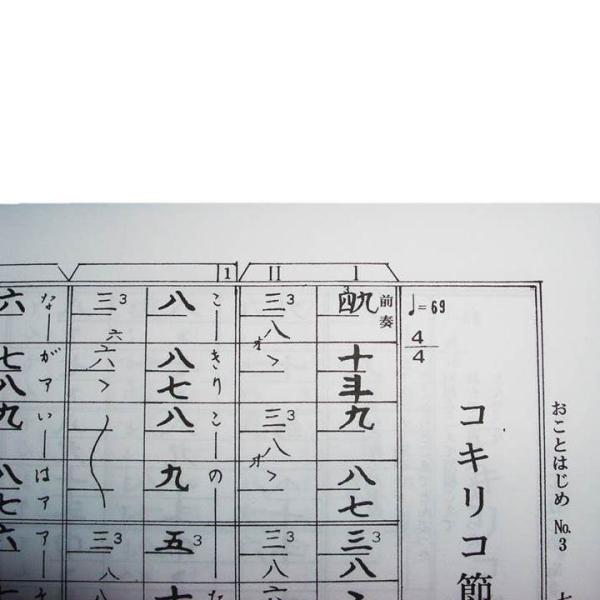 おことはじめ No.3
コキリコ節
♩=69
4/4
前奏
I
四九
十
斗
九
八
七
三3
八
II
三3
八
オ
>
三3
八
オ
>
三3
八
六
1
こーきりこーの
八
八
七
八
九
五3
十
三3
六
六
八
>
三3
八
なーがァいーはァアー
六
七
八
九
八
七
六
七